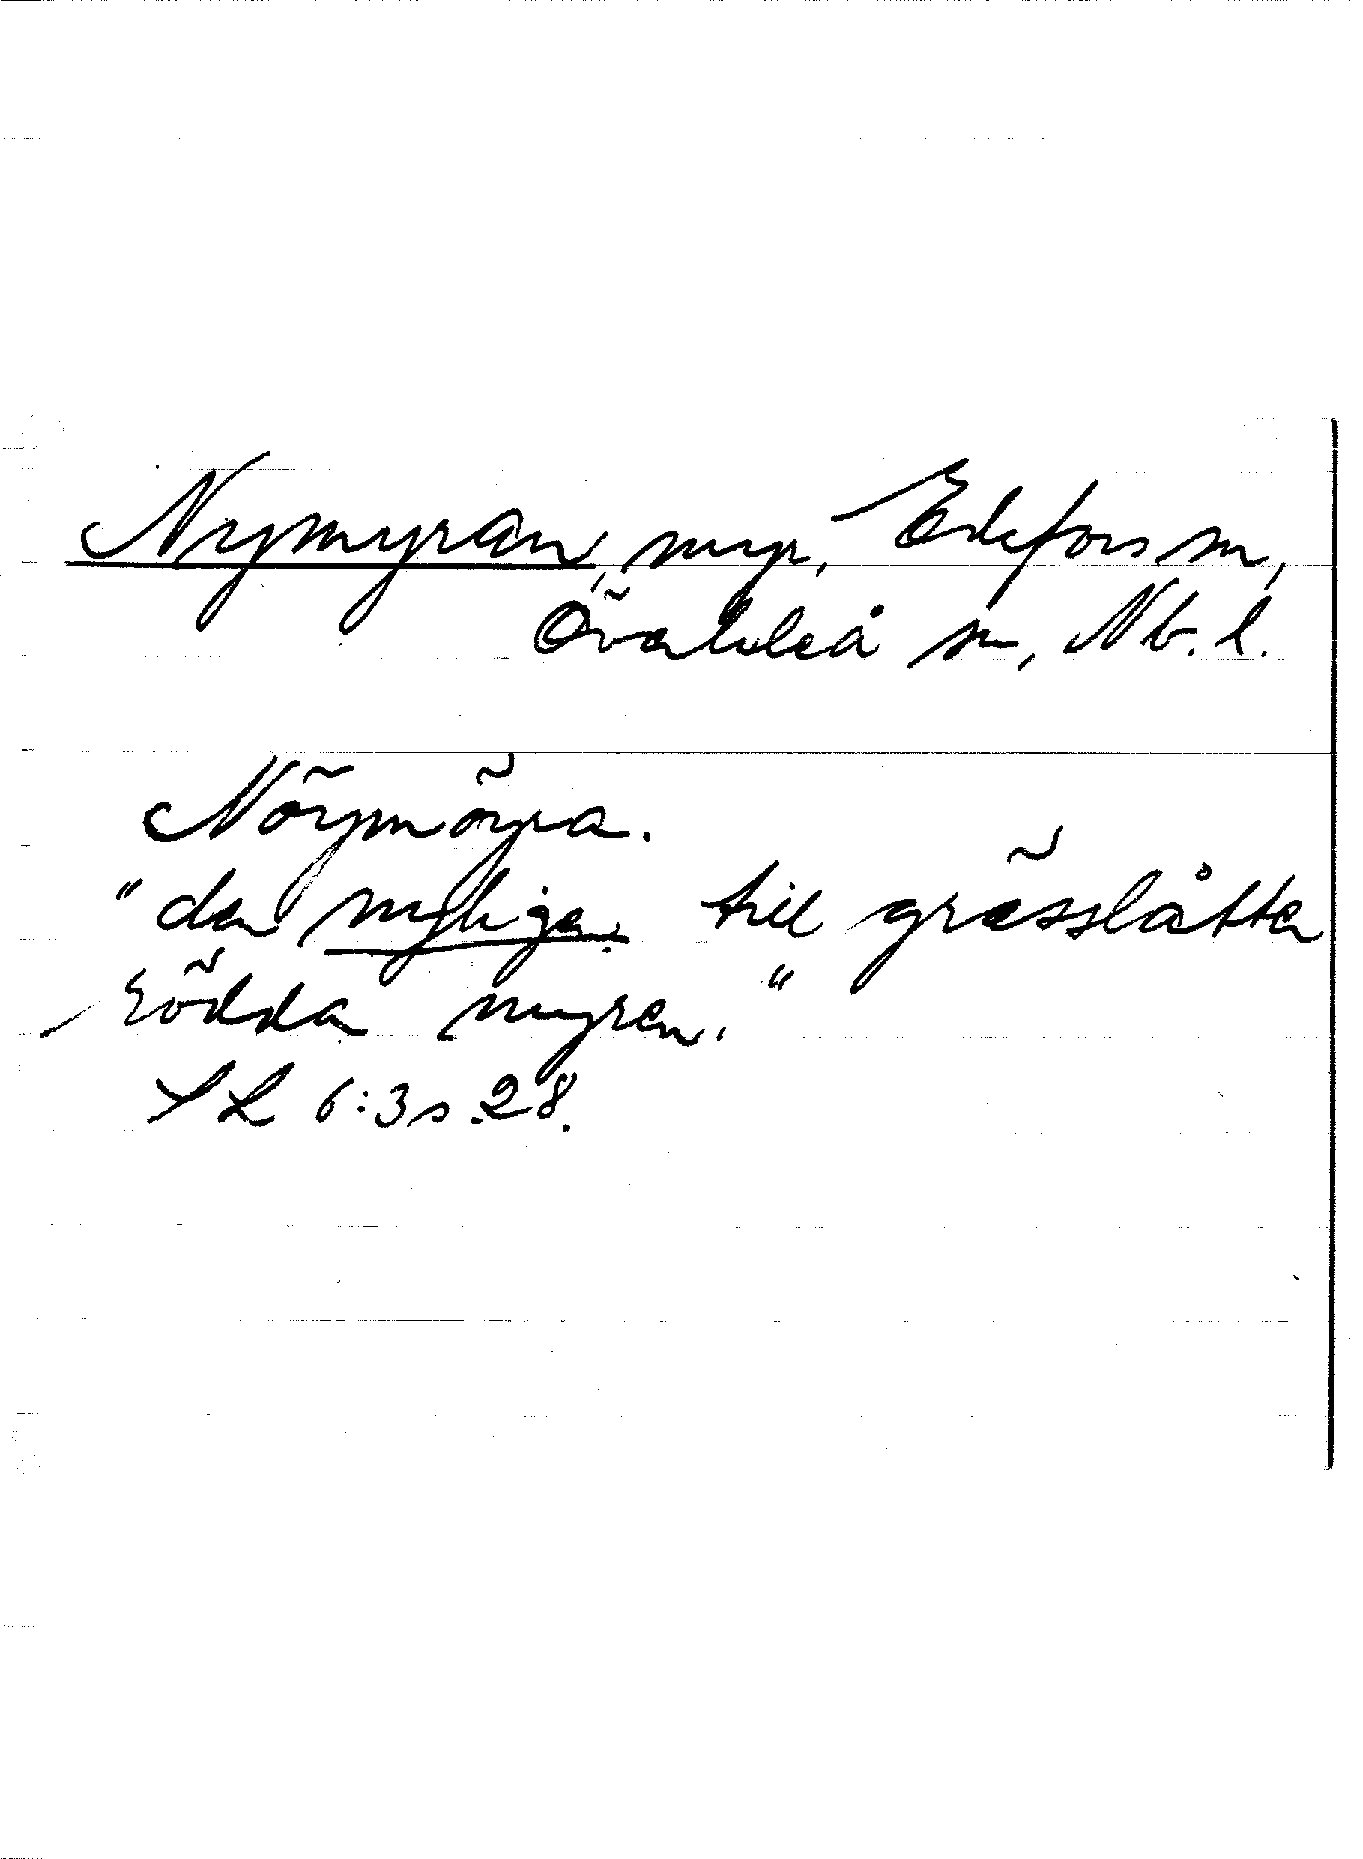 Nymyran, myr, Edefors sn,
Överluleå sn, Nb. l.
Nöymöyra.
"den nyligen till grässlåtter
rödda myren."
SL 6:3 s. 28.